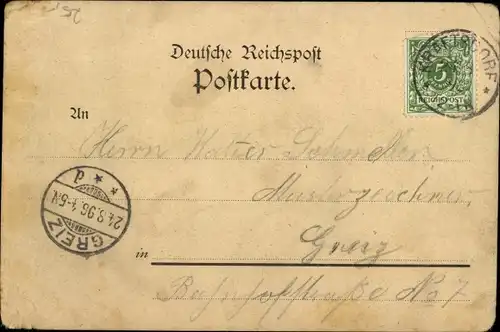 Deutsche Reichspost
Postkarte.
5
REICHSPOST
An
Herrn Walter
Musterzeichner
GREIZ
24.8.96.4-5N
d
in Greiz
Bahnhofstraße No 7